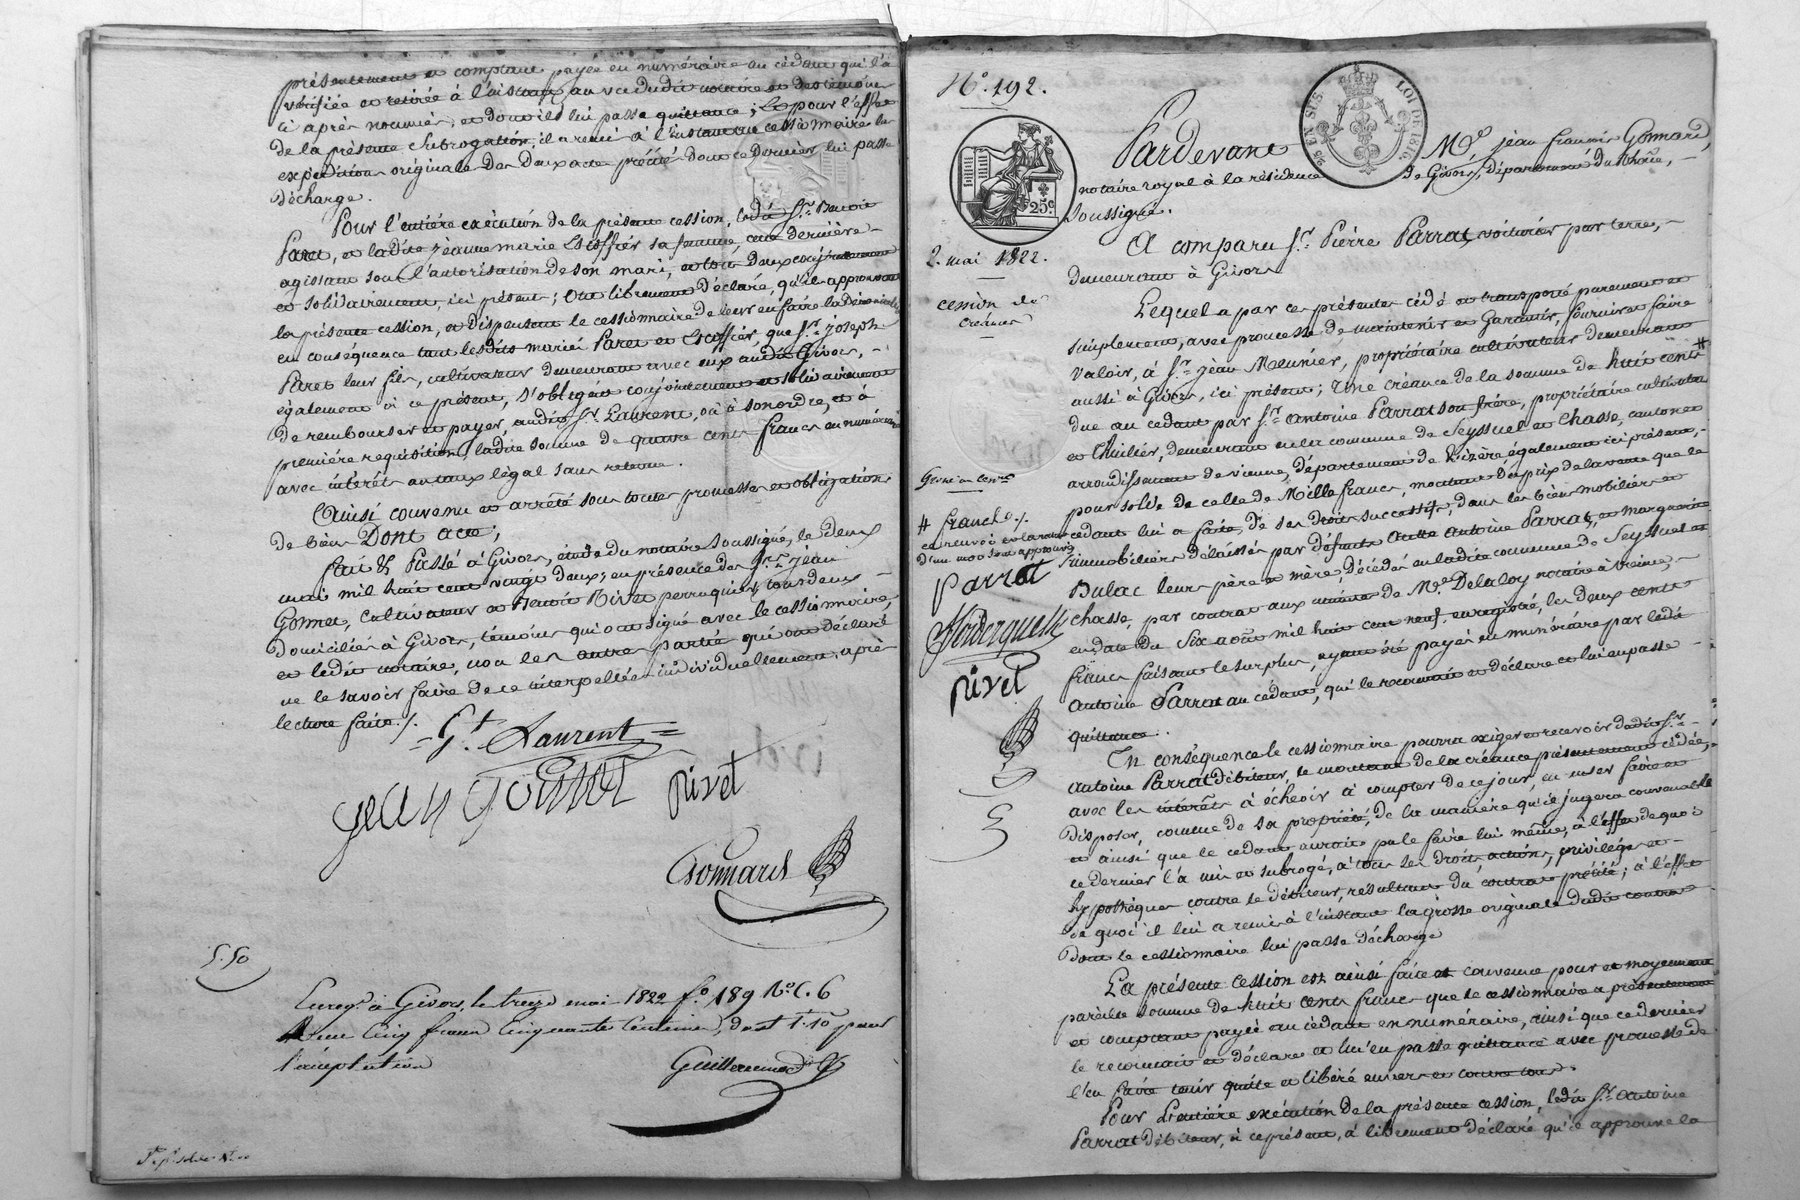 présentement et comptant payée en numéraire au cédant qui l'a
vérifiée et retirée à l'instant au vu dudit notaire et des témoins
ci après nommés, et dont ils lui passe quittance; Et pour l'effet
de la présente subrogation, il a remis à l'instant au cessionnaire les
expéditions originale des deux acte précité dont ce dernier lui passe
décharge.
Pour l'entière exécution de la présente cession, ledit Sr. Benoit
Paret, et ladite Jeanne marie Escoffier sa femme, cette dernière
agissant sous l'autorisation de son mari, et tous deux conjointement
et solidairement, ici présent; Ont librement déclaré, qu'ils approuvent
la présente cession, et dispensent le cessionnaire de leur en faire la dénonciation
en conséquence tant lesdits mariés Paret et Escoffier, que Sr. joseph
Paret leur fils, cultivateur demeurant avec eux audit Givors, -
également à ce présent, s'obligent conjointement et solidairement
de rembourser et payer, audit Sr. Laurent, où à son ordre, et à
première requisition, ladite somme de quatre cents francs en numéraire
avec intérêts au taux légal sans retenue.
Ainsi convenu et arrêté sous toutes promesses et obligations
de biens Dont acte;
fait & Passé à Givors, étude du notaire soussigné, le deux
mai mil huit cent vingt deux; en présence des Srs. jean
Gonnet, cultivateur et Benoit Rivet perruquier, tous deux
domiciliés à Givors, témoins qui ont signé avec le cessionnaire,
et ledit notaire, non les autres partie qui ont déclaré
ne le savoir faire de ce interpellées individuellement, après
lecture faite ./.
= Gt. Laurent =
jean gonnet rivet
Gonnard
5.50
Enregé. à Givors, le treize mai 1822 fo. 189 Ro. C. 6
Reçu Cinq francs Cinquante Centimes, dont pour
l'acceptation
N°. 192.
25 EN SUS. LOI DE 1816
25c
Pardevant Me. jean françois Gonnard,
notaire royal à la résidence de Givors, département du Rhône, -
soussigné.
2. mai 1822.
A comparu Sr. Pierre Parrat, voiturier par terre, -
demeurant à Givors
cession de
créances
Lequel a par ces présentes cédé et transporté purement et
simplement, avec promesse de maintenir et Garantir, fournir et faire
valoir, à Sr. jean Meunier, propriétaire cultivateur demeurant
aussi à Givors, ici présent; Une créance de la somme de huit cents #
due au cedant par Sr. antoine Parrat son frère, propriétaire cultivateur
et thuilier, demeurant en la commune de Seyssuel et Chasse, canton et
arrondissement de vienne, département de l'izère également ici présent, -
pour solde de celle de Mille francs, montant du prix de la vente que le
# francs ./.
cedant lui a faite, de ses droits successifs, dans les biens mobiliers et
immobiliers délaissés par défunts autre antoine Parrat, et marguerite
Dulac leurs père et mère, décédés en ladite commune de Seyssuel et
chasse, par contrat aux de Me. Delaloy notaire à vienne, -
en date du six août mil huit cent neuf, enregistré, les deux cents
francs faisant le surplus, ayant été payés en numéraire par ledit
Antoine Parrat au cédant, qui le reconnait et déclare et lui en passe
quittance.
parrat
rivet
En conséquence le cessionnaire pourra exiger et recevoir dudit Sr.
antoine Parrat débiteur, le montant de la créance présentement cédée, -
avec les intérêts à échoir à compter de ce jour, en user faire et
disposer, comme de sa propriété, de la manière qu'il jugera convenable
et ainsi que le cedant aurait pu le faire lui même, à l'effet de quoi
ce dernier l'a mis et subrogé, à tous ses droits, actions, privilèges et -
hypothèques contre le débiteur, résultant du contrat précité; à l'effet
de quoi il lui a remis à l'instant la grosse originale dudit contrat
dont le cessionnaire lui passe décharge
La présente cession est ainsi faite et convenue pour et moyennant
pareille somme de huit cents francs que le cessionnaire a présentement
et comptant payée au cédant en numéraire, ainsi que ce dernier
le reconnait et déclare et lui en passe quittance avec promesse de
l'en faire tenir quitte et libéré envers et contre tous.
Pour l'entière exécution de la présente cession, ledit Sr. antoine
Parrat débiteur, à ce présent, à librement déclaré qu'il approuve la